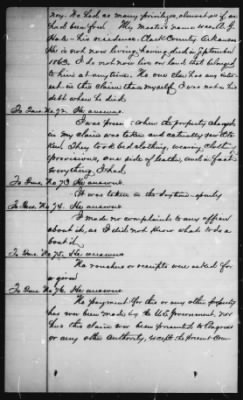 ney. We had as many privileges, almost as if we
had been free. My master's name was A. J.
Hale. his residence, Clark County, Arkansas
He is not now living, having died in September
1863. I do not now live on land that belonged
to him at anytime. No one else has any inter-
est in this claim than myself, I was not in his
debt when he died
To Ques. No 72. He answers.
I was present when the property charged
in my claim was taken and actually saw it ta-
ken. They took bed clothing, wearing clothing
provisions, one side of leather, and in fact
everything, I had.
To Ques. No 73. He answers
It was taken in the daytime openly
To Ques. No 74. He answers.
I made no complaints to any officer
about it, as I did not know what to do a-
bout it.
To Ques. No 75. He answers
No vouchers or receipts were asked for
or given
To Ques. No 76. He answers
No payment for this or any other property
has ever been made by the U.S. Government, nor
has this claim ever been presented to Congress
or any other Authority, except the present Com-